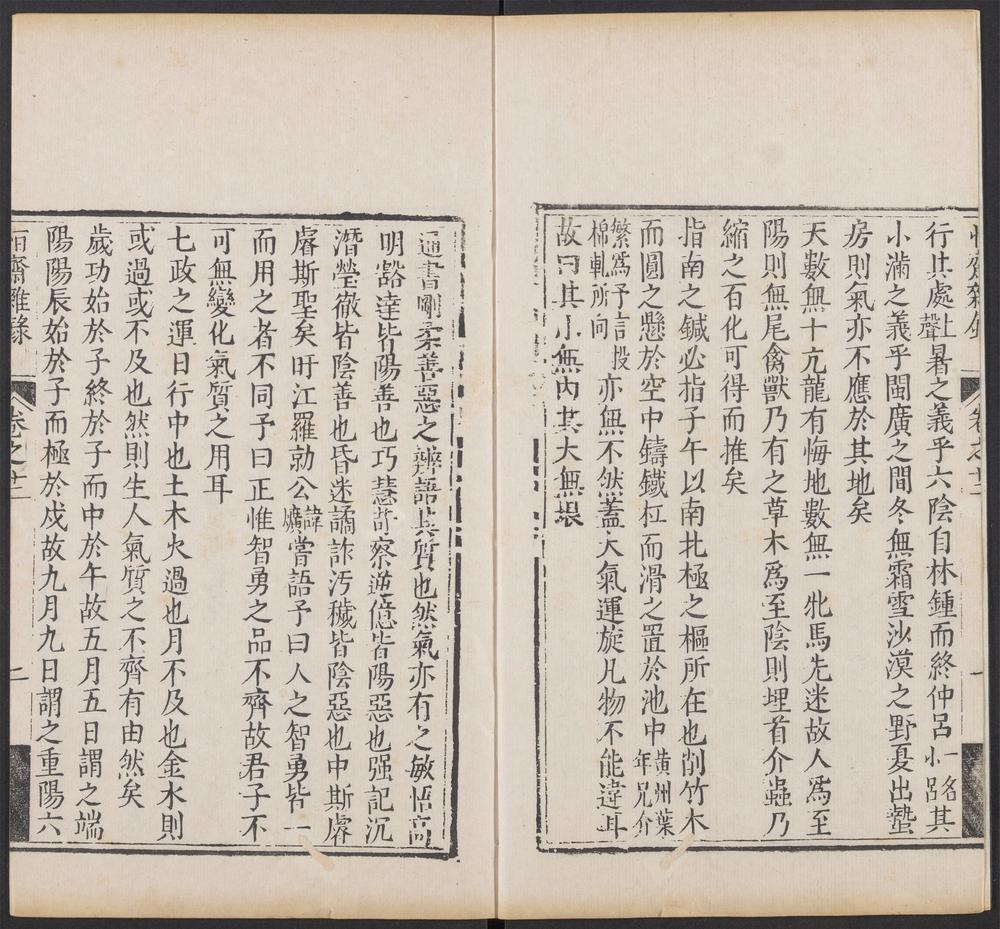 行其處上聲暑之義乎六陰自林鍾而終仲呂一名小呂其
小滿之義乎閩廣之間冬無霜雪沙漠之野夏出蟄
房則氣亦不應於其地矣
天數無十亢龍有悔地數無一牝馬先迷故人為至
陽則無尾禽獸乃有之草木為至陰則埋首介蟲乃
縮之石化可得而推矣
指南之鍼必指子午以南北極之樞所在也削竹木
而圓之懸於空中鑄鐵杠而滑之置於池中黃州葉年兄介
繁為予言投棉軋所向亦無不然蓋大氣運旋凡物不能違耳
故曰其小無內其大無垠
通書剛柔善惡之辨語其質也然氣亦有之敏悟高
明豁達皆陽善也巧慧苛察逆億皆陽惡也强記沉
潛瑩徹皆陰善也昏迷譎詐汚穢皆陰惡也中斯睿
睿斯聖矣旴江羅勍公諱爌嘗語予曰人之智勇皆一
而用之者不同予曰正惟智勇之品不齊故君子不
可無變化氣質之用耳
七政之運日行中也土木火過也月不及也金水則
或過或不及也然則生人氣質之不齊有由然矣
歲功始於子終於子而中於午故五月五日謂之端
陽陽辰始於子而極於戌故九月九日謂之重陽六
齋雜錄 卷之十二 二